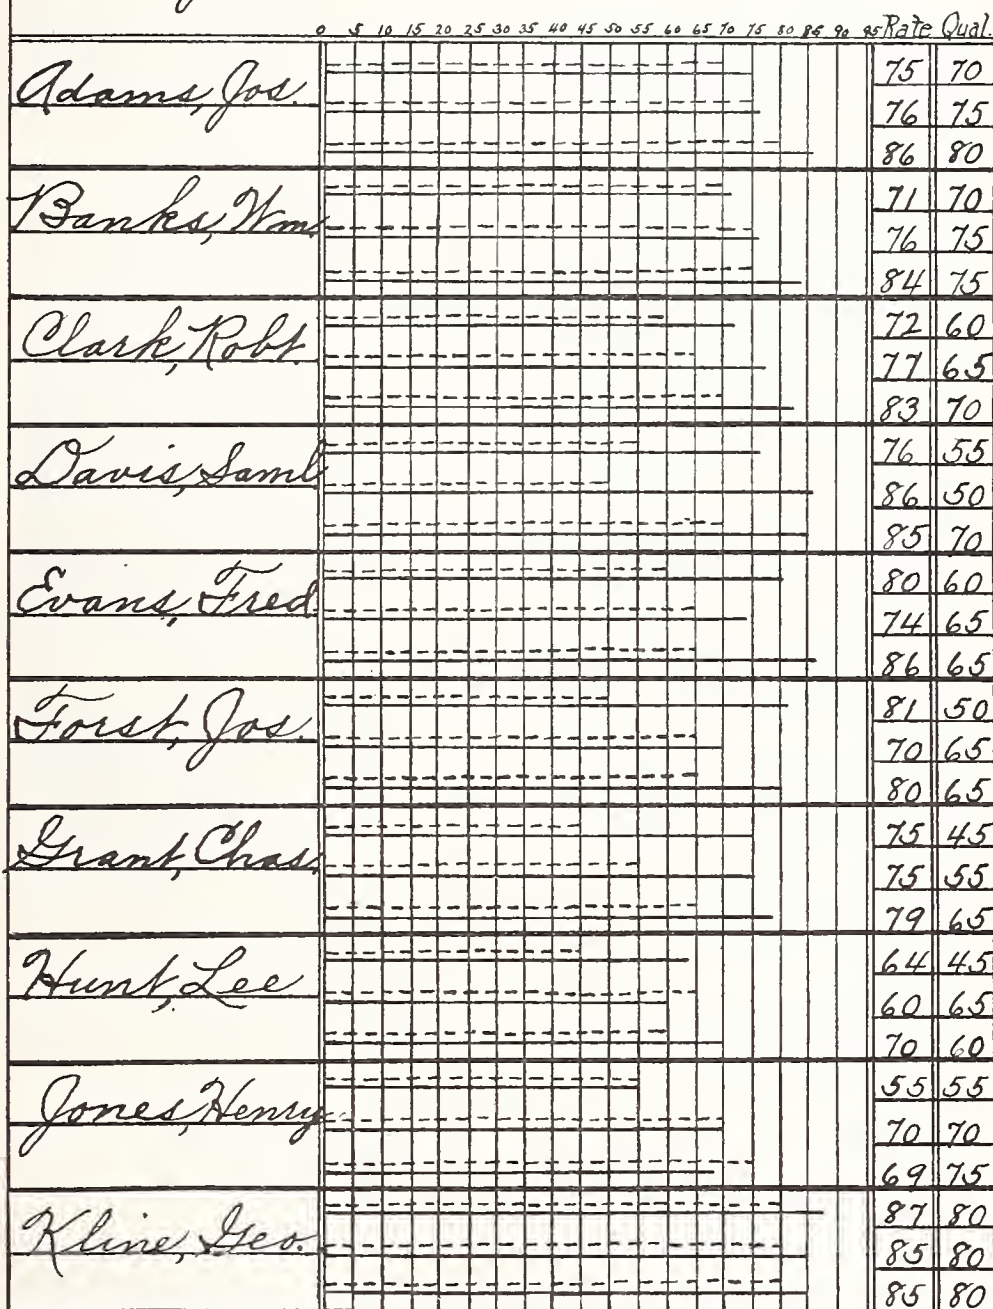 0 5 10 15 20 25 30 35 40 45 50 55 60 65 70 75 80 85 90 95 Rate Qual.
Adams, Jos. 75 70
76 75
86 80
Banks, Wm. 71 70
76 75
84 75
Clark, Robt. 72 60
77 65
83 70
Davis, Saml 76 55
86 50
85 70
Evans, Fred. 80 60
74 65
86 65
Forst, Jos. 81 50
70 65
80 65
Grant, Chas. 75 45
75 55
79 65
Hunt, Lee 64 45
60 65
70 60
Jones, Henry 55 55
70 70
69 75
Kline, Geo. 87 80
85 80
85 80